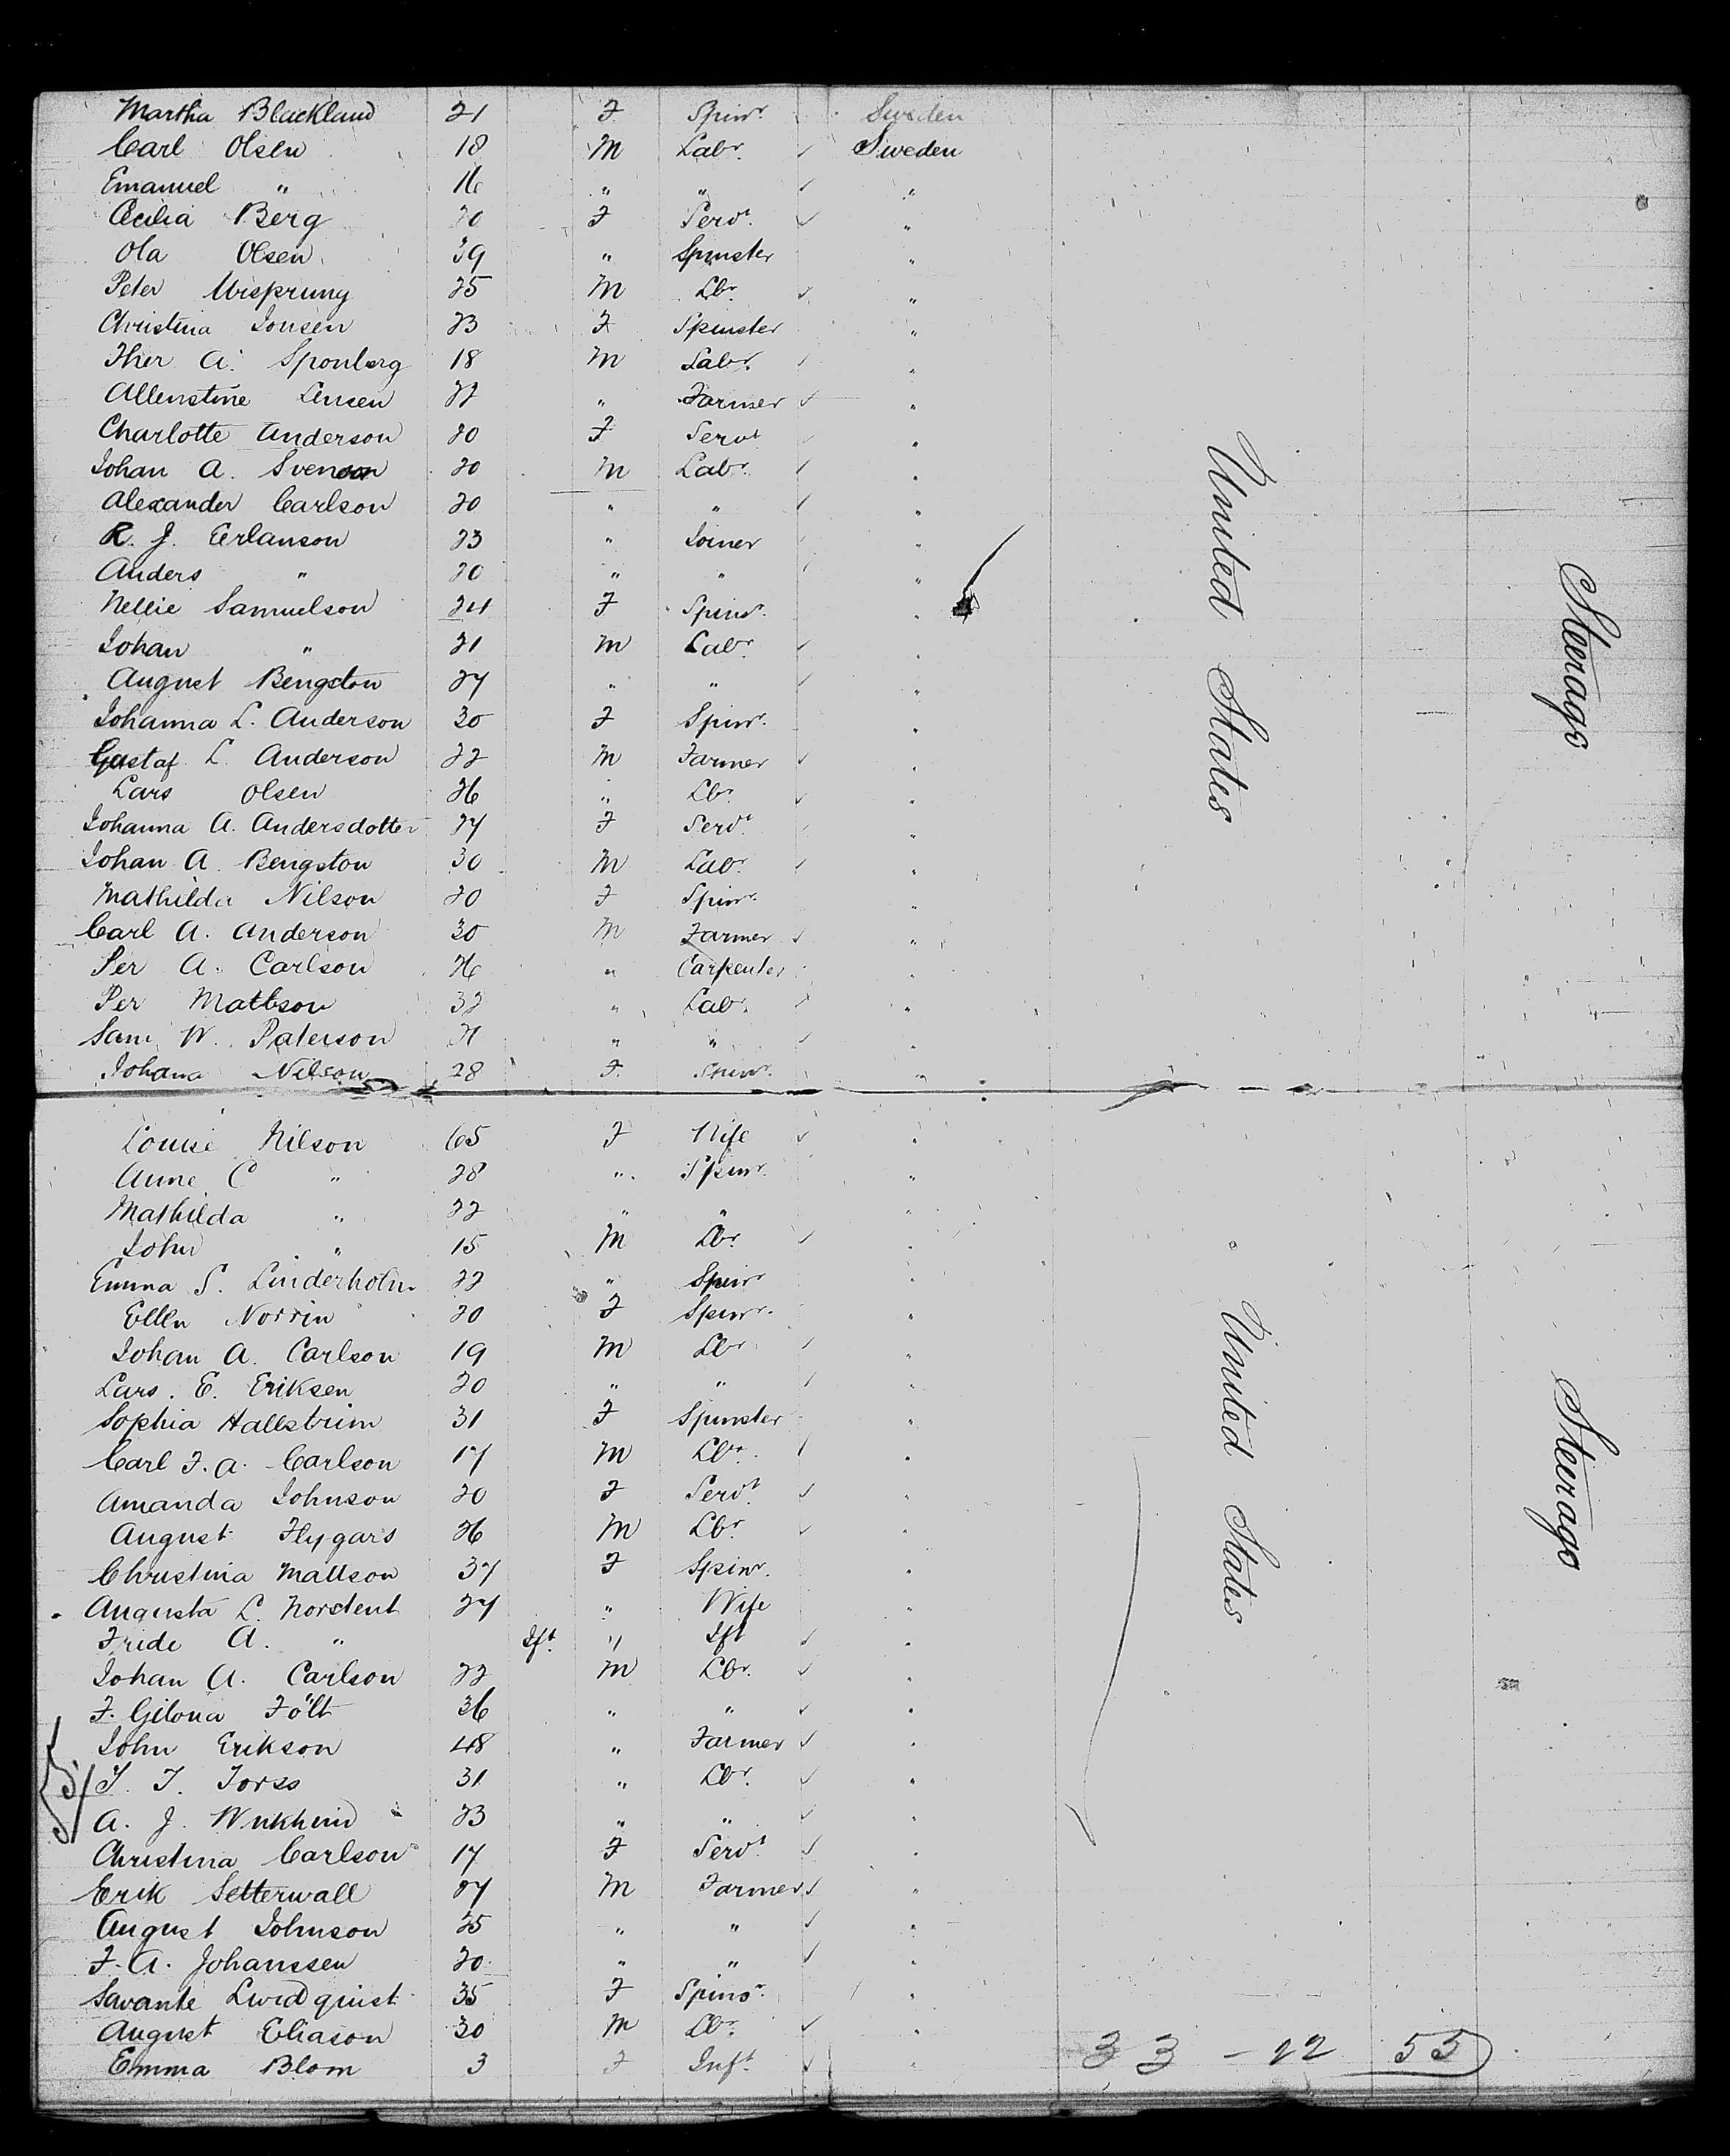 Martha Blackland 21 F Spinr. Sweden
Carl Olsen 18 M Labr. Sweden
Emanuel " 16 " " "
Cecilia Berg 20 F Servt. "
Ola Olsen 39 " Spinster "
Peter Ursprung 25 M Lbr. "
Christina Jonsen 23 F Spinster "
A. Sponberg 18 M Labr. "
Allenstine Jensen 22 " Farmer "
Charlotte Anderson 20 F Servt "
Johan A. Svenson 20 M Labr. "
Alexander Carlson 20 " " "
R. J. Erlanson 23 " Joiner "
Anders " 20 " " "
Nellie Samuelson 24 F Spinr. "
Johan " 21 M Labr. "
August Bengston 27 " " "
Johanna L. Anderson 30 F Spinr. "
Gustaf L. Anderson 22 M Farmer "
Lars Olsen 26 " Lbr. "
Johanna A. Andersdotter 27 F Servt. "
Johan A. Bengston 30 M Labr. "
Mathilda Nilson 20 F Spinr. "
Carl A. Anderson 30 M Farmer "
Per A. Carlson 26 " Carpenter "
Per Mattson 32 " Labr. "
Sam. W. Paterson 21 " " "
Johana Nilson 28 F. Spinr. "
United States
Steerage
Louise Nilson 65 F Wife "
Anne C " 28 " Spinr. "
Mathilda " 22 " " "
John " 15 M Lbr. "
Emma S. Linderholm 22 " Spinr "
Ellen Norrin 20 F Spinr. "
Johan A. Carlson 19 M Lbr. "
Lars. E. Eriksen 20 " " "
Sophia Hallstrim 31 F Spinster "
Carl F. A. Carlson 17 M Lbr. "
Amanda Johnson 20 F Servt. "
August Flygars 26 M Lbr. "
Christina Mattson 37 F Spinr. "
Augusta L. Nordent 27 " Wife "
Fride A. " Ift. " Ift "
Johan A. Carlson 22 M Lbr. "
F. Gilona Fölt 36 " " "
John Erikson 48 " Farmer "
T. Torss 31 " Lbr. "
A. J. 23 " " "
Christina Carlson 17 F Servt. "
Erik Setterwall 27 M Farmer "
August Johnson 25 " " "
F. A. Johanssen 20 " " "
Savante Lundquist 35 F Spinsr. "
August Eliason 30 M Lbr. "
Emma Blom 3 F Inft. "
United States
Steerage
55
33 - 22 55